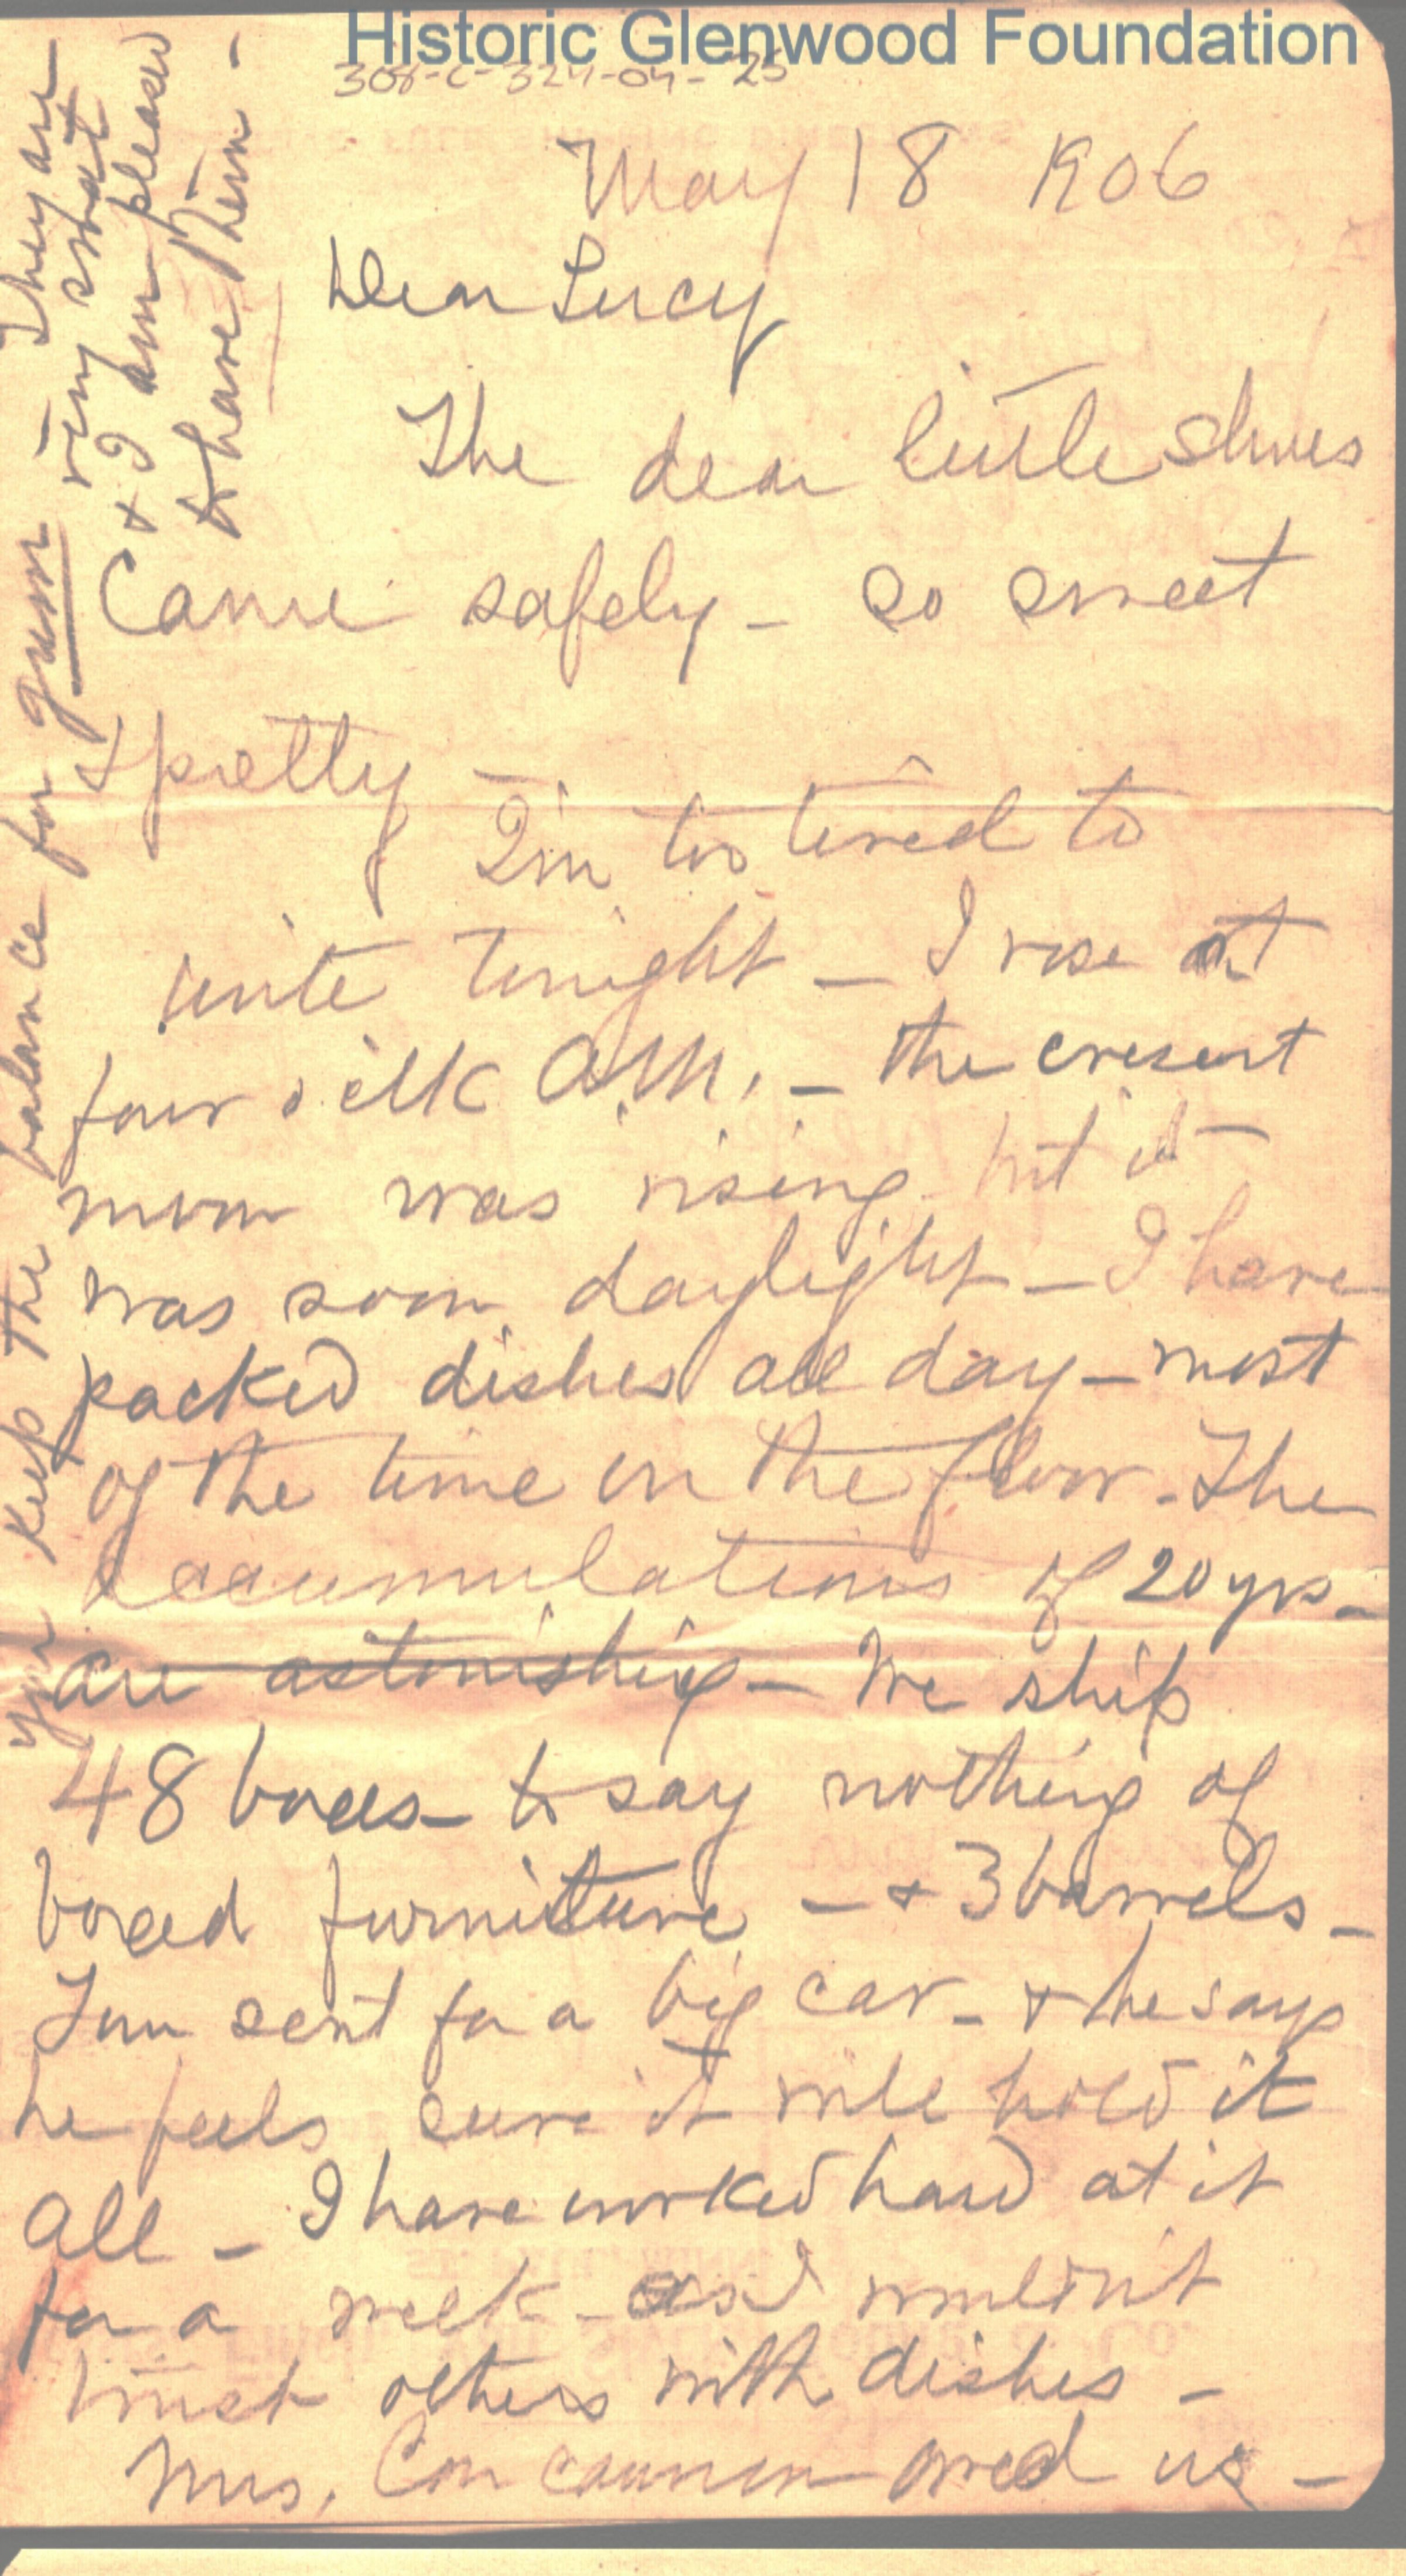 Historic Glenwood Foundation
308-C-324-04-25
May 18 1906
Dear Lucy
The dear little shoes
came safely - so sweet
& pretty -
I'm too tired to
write tonight - I rose at
four o'clk A.M. - the cresent
moon was rising but it
was soon daylight - I have
packed dishes all day - most
of the time on the floor - The
accumulations of 20 yrs -
are astonishing - We ship
48 boxes - to say nothing of
boxed furniture - & 3 barrels -
Tom sent for a big car - & he says
he feels sure it will hold it
all - I have worked hard at it
for a week - as I wouldn't
trust others with dishes -
Mrs. Concannon owed us -
you keep the balance for gum - They are
very smart
& I am pleased
to have them -